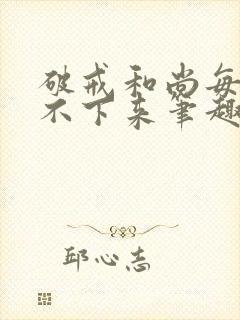 破戒和尚每
不下来笔趣
邱心志